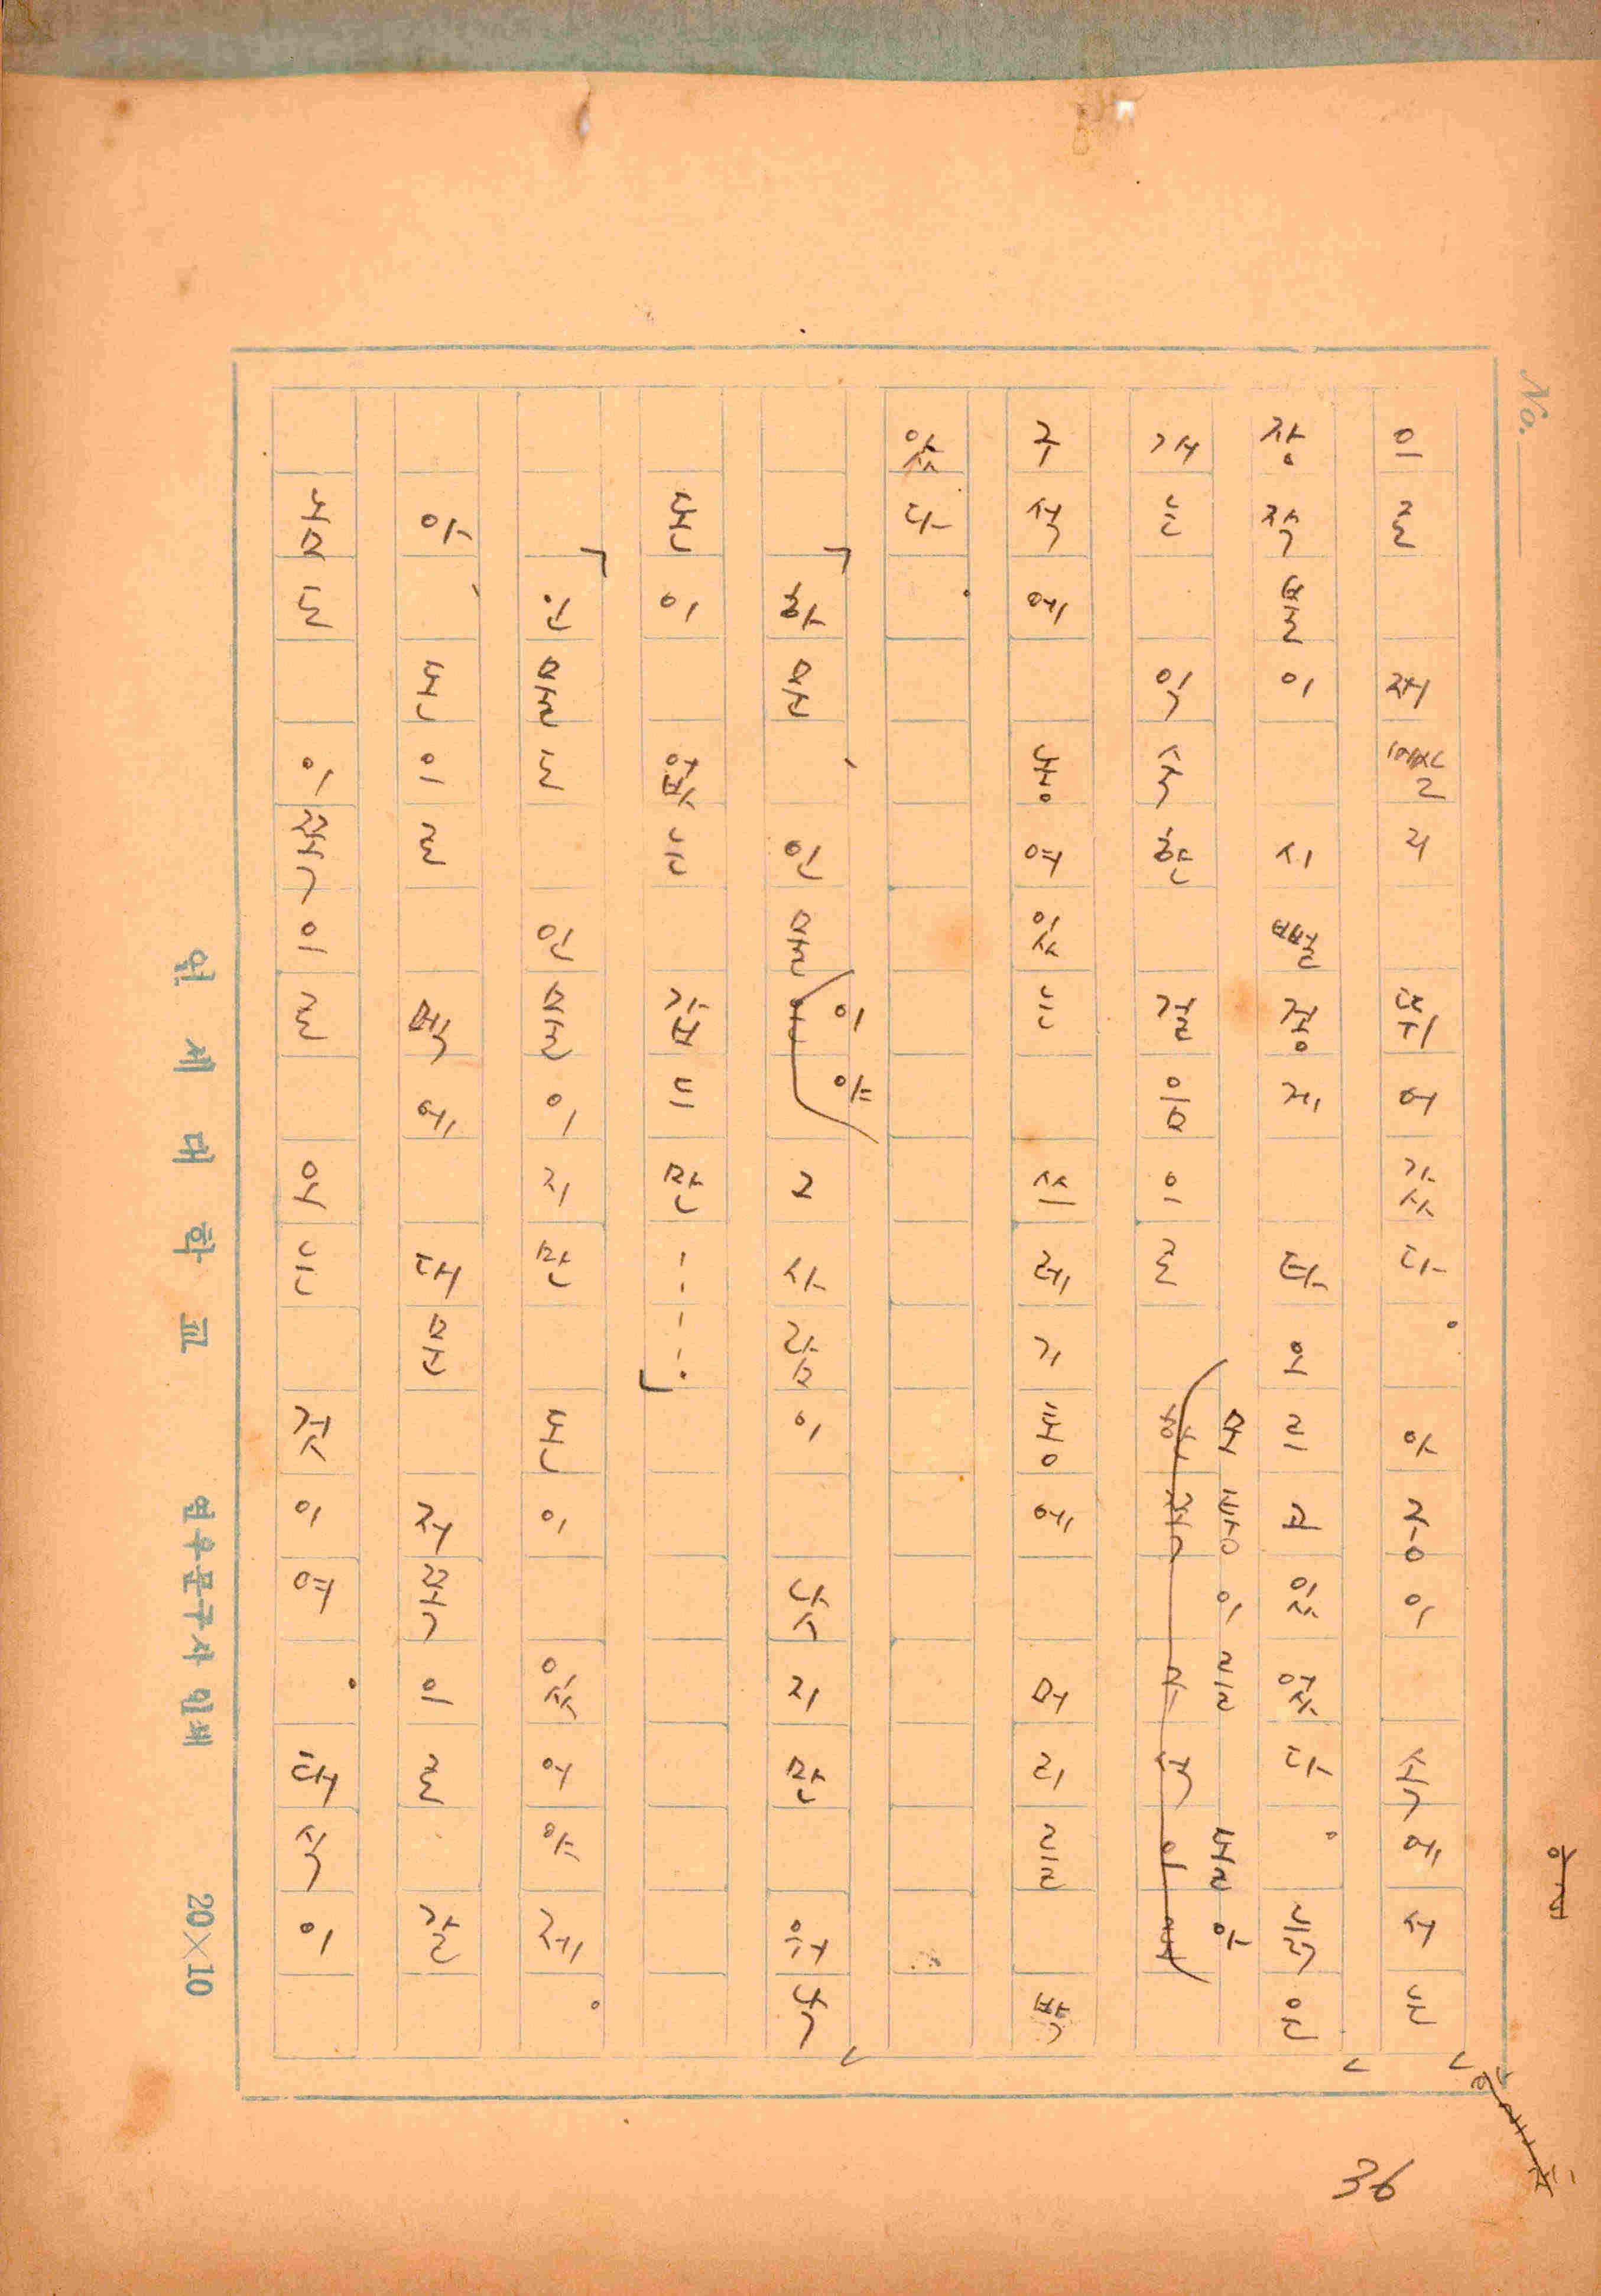 No.
으로 재빨리 뛰어갔다. 아궁이 속에서는
장작불이 시뻘겋게 타오르고 있었다. 늙은
개는 익숙한 걸음으로 모퉁이를 돌아
구석에 놓여있는 쓰레기통에 머리를 박
았다.
「하모, 인물이야 그 사람이 낫지만 워낙
돈이 없는 갑드만·····」
「인물도 인물이지만 돈이 있어야제.
아, 돈으로 대모 저쪽으로 갈
놈도 이쪽으로 오는 것이여.
연세대학교 연우문구사 인쇄 20×10
36